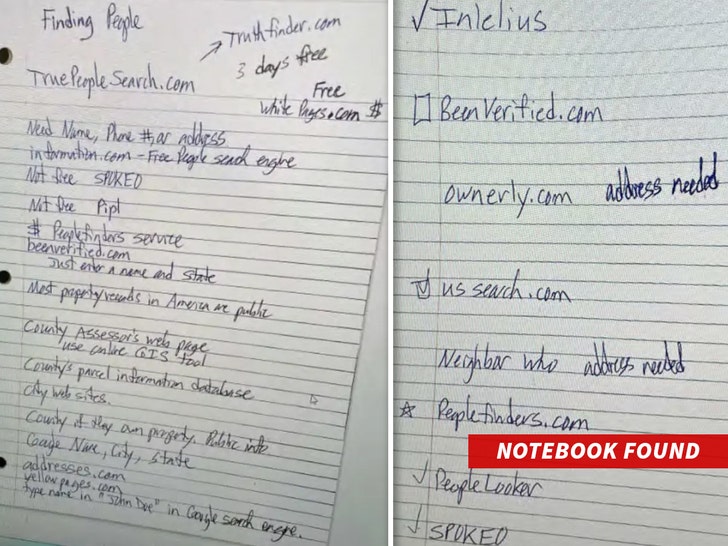 Finding People
Truthfinder.com
3 days free
TruePeopleSearch.com
Free
White Pages.com $
Need Name, Phone #, or address
information.com - Free People search engine
Not free SPOKEO
Not free Pipl
$ Peoplefinders service
beenverified.com
Just enter a name and state
Most property records in America are public
County Assessor's web page
use online GIS tool
County's parcel information database
City web sites.
County if they own property. Public info
Google Name, City, State
addresses.com
yellow pages.com
type name in "John Doe" in Google search engine.
✓ Intelius
☐ BeenVerified.com
ownerly.com address needed
☑ us search.com
Neighbor who address needed
☆ Peoplefinders.com
NOTEBOOK FOUND
✓ People Looker
✓ SPOKEO